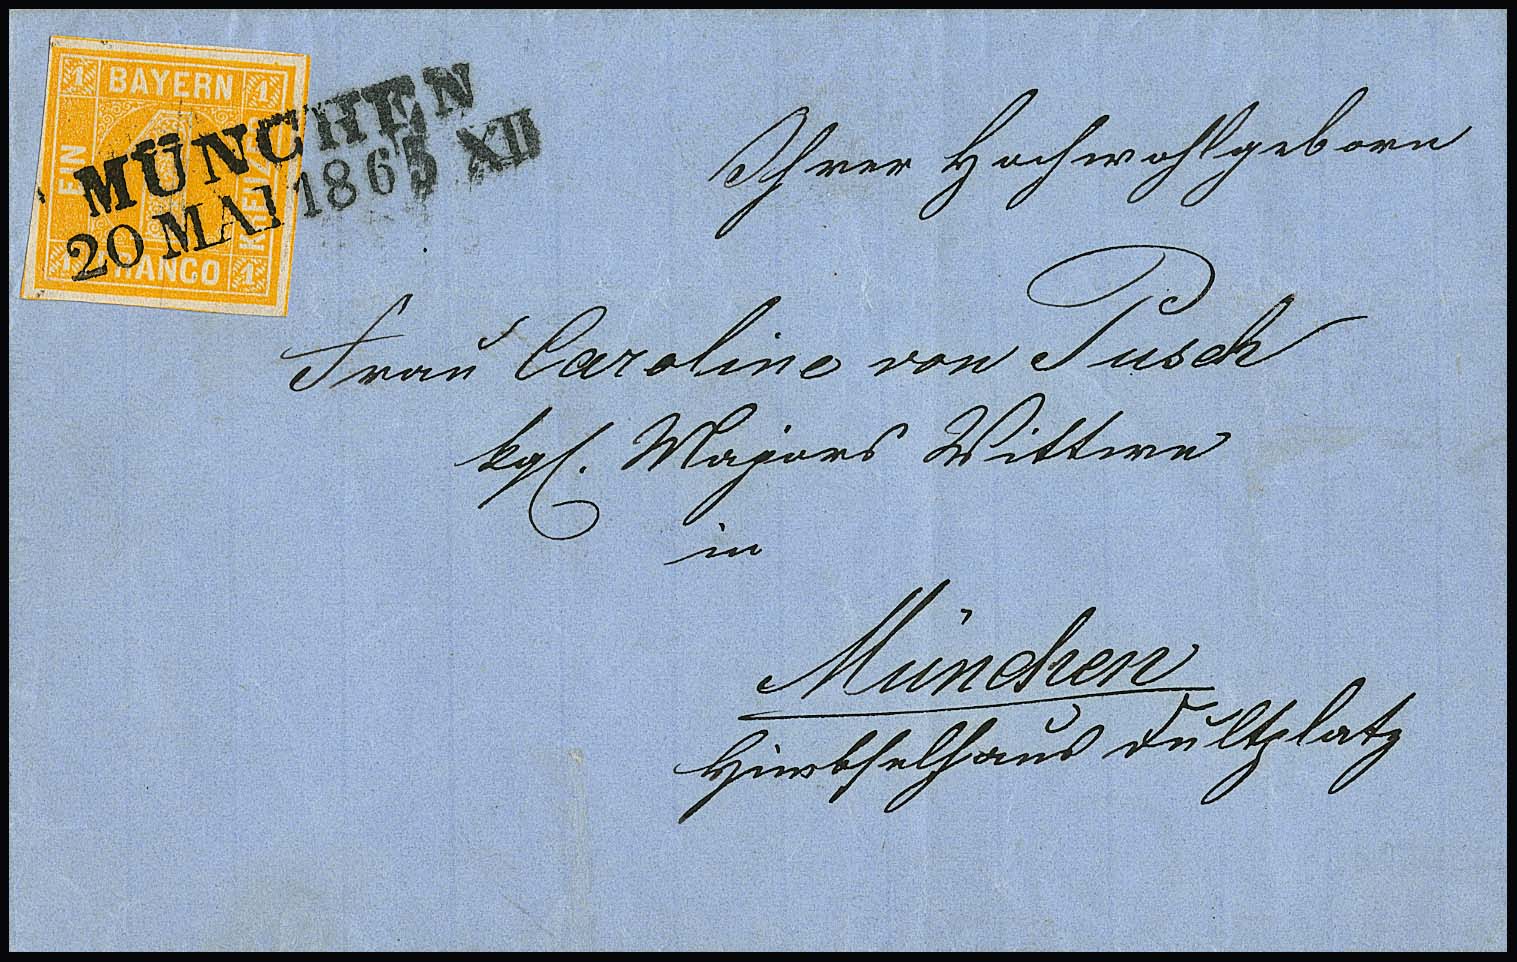 1 BAYERN 1
EIN
KREUZER
1 FRANCO 1
MÜNCHEN
20 MAI 1863 XII
Ihrer Hochwohlgeborn
Frau Caroline von Pusch
kgl. Majors Wittwe
in
München
Dultplatz